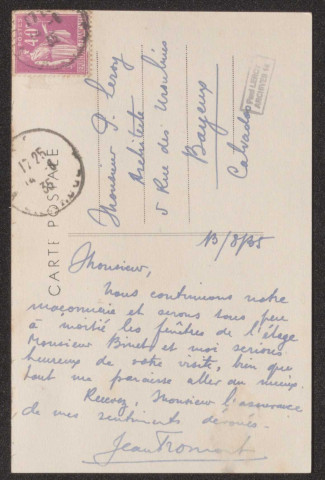 40c
17 25
35
CARTE POSTALE
Monsieur P. Leroy
Architecte
5 Rue des Ursulines
Bayeux
Calvados
13/8/35
Monsieur,
Nous continuons notre
maçonnerie et serons sous peu
à moitié les fenêtres de l'étage
Monsieur Binet et moi serions
heureux de votre visite, bien que
tout me paraisse aller au mieux.
Recevez, Monsieur l'assurance
de mes sentiments dévoués.
Jean Fromont